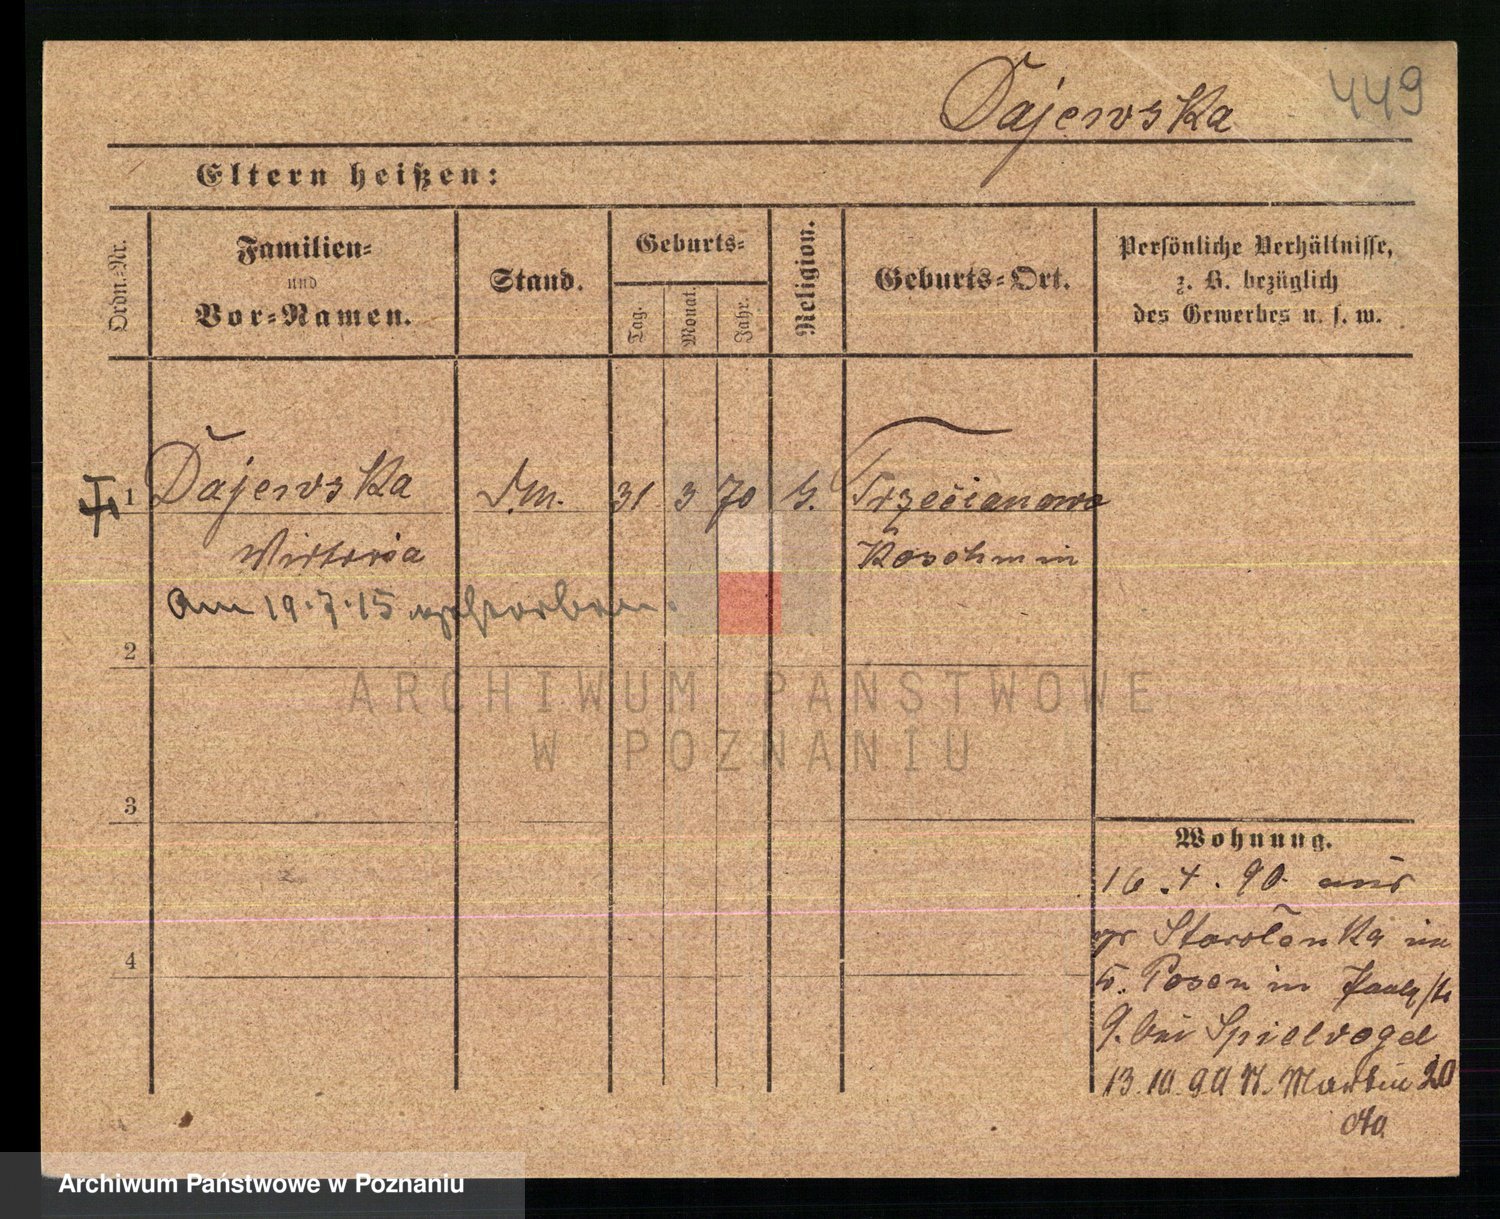 449
Dajewska
Eltern heißen:
Ordn.-Nr.
Familien-
und
Vor-Namen.
Stand.
Geburts-
Tag.
Monat.
Jahr.
Religion.
Geburts-Ort.
Persönliche Verhältnisse,
z. B. bezüglich
des Gewerbes u. s. w.
1 Dajewska 31 3 70
Koschmin
Am 19.7.15 gestorben.
2
3
4
Wohnung.
16.4.90 aus
gr Starolenka in
Posen in
9. bei Spielvogel
13.10.90 St. Martin 20
ARCHIWUM PAŃSTWOWE
W POZNANIU
Archiwum Państwowe w Poznaniu